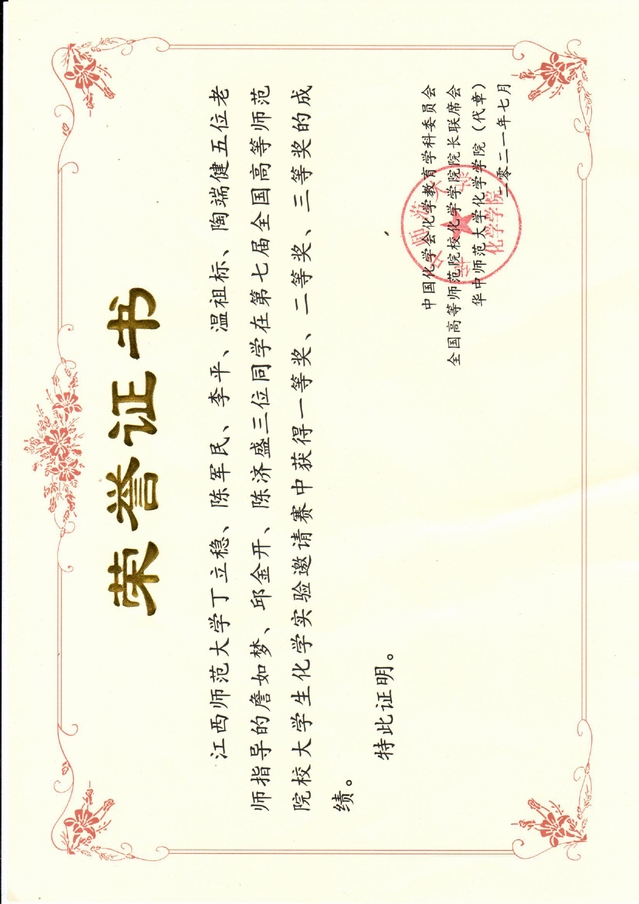 荣誉证书
江西师范大学丁立稳、陈军民、李平、温祖标、陶瑞健五位老
师指导的詹如梦、邱金开、陈济盛三位同学在第七届全国高等师范
院校大学生化学实验邀请赛中获得一等奖、二等奖、三等奖的成
绩。
特此证明。
中国化学会化学教育学科委员会
全国高等师范院校化学学院院长联席会
华中师范大学化学学院（代章）
二零二一年七月
华中师范大学
化学学院